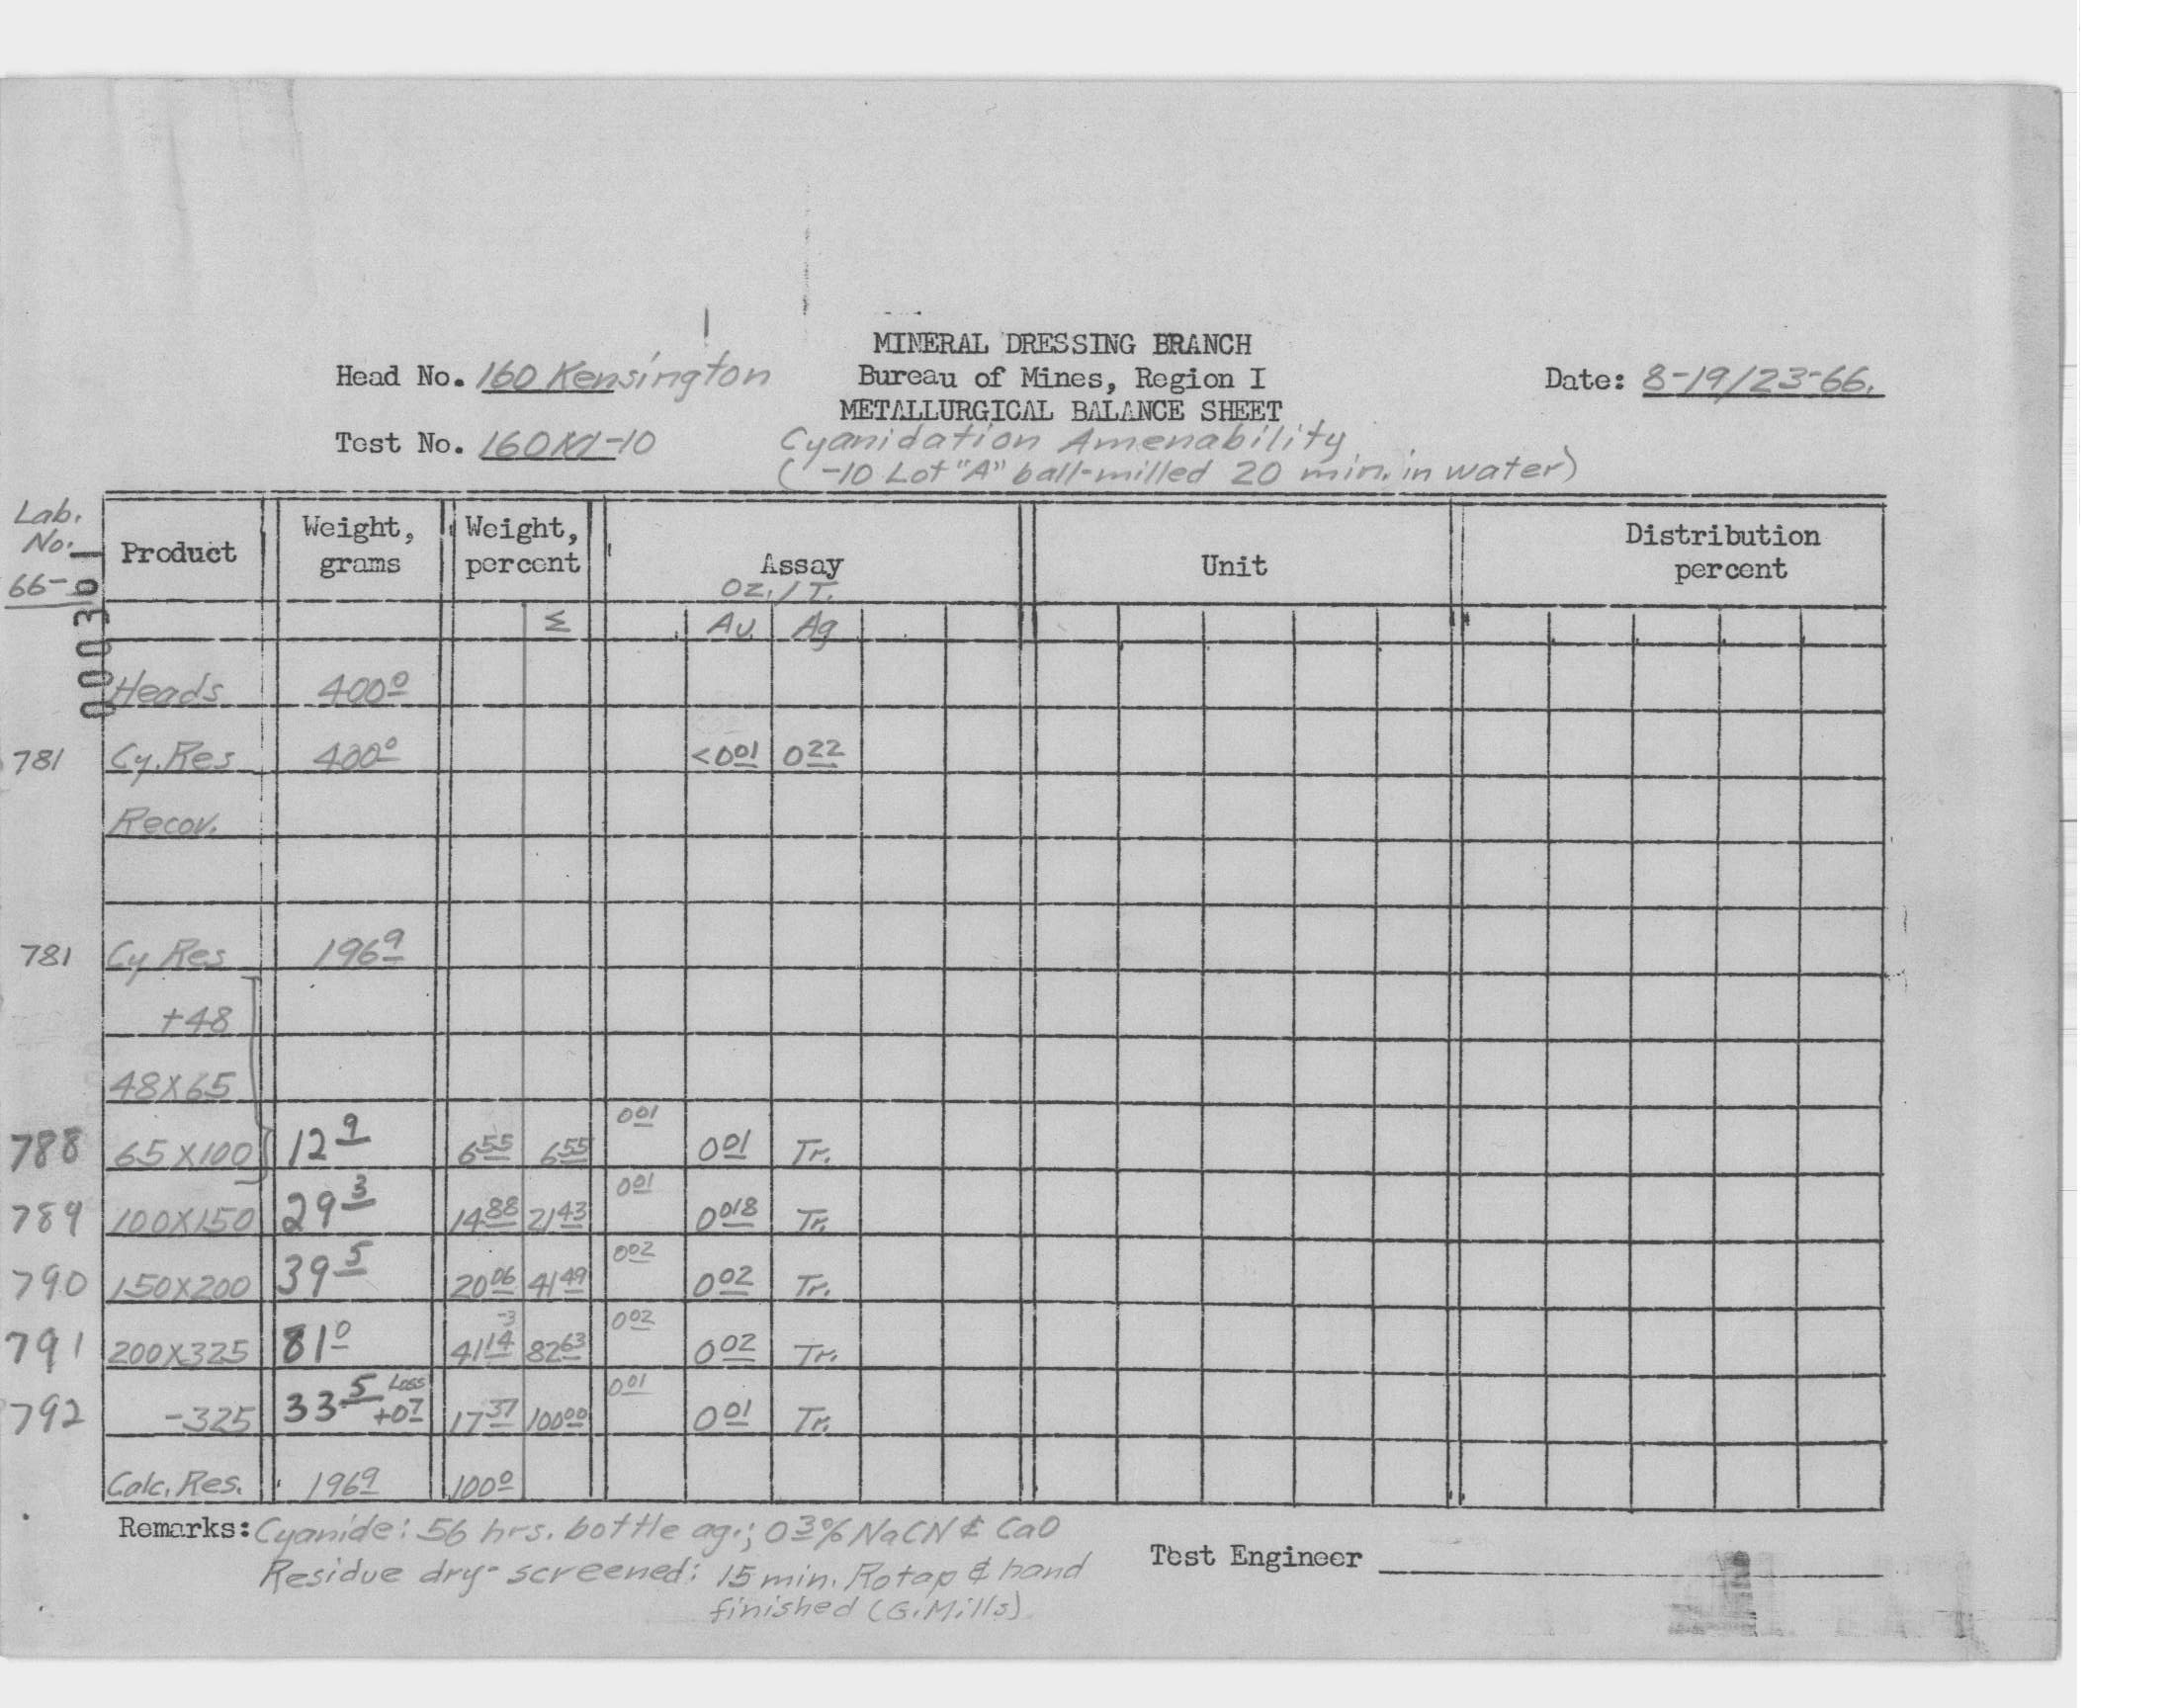 MINERAL DRESSING BRANCH
Head No. 160 Kensington Bureau of Mines, Region I Date: 8-19/23-66.
METALLURGICAL BALANCE SHEET
Test No. 160K1-10 Cyanidation Amenability
(-10 Lot "A" ball-milled 20 min. in water)
Lab. No. 66- Product Weight, grams Weight, percent Assay Oz./T. Unit Distribution percent
000361
Σ Au. Ag
Heads 400⁰
781 Cy. Res 400⁰ <0⁰¹ 0²²
Recov.
781 Cy Res 196⁹
+48
48X65
788 65X100 12⁹ 6⁵⁵ 6⁵⁵ 0⁰¹ 0⁰¹ Tr.
789 100X150 29³ 14⁸⁸ 21⁴³ 0⁰¹ 0⁰¹⁸ Tr.
790 150X200 39⁵ 20⁰⁶ 41⁴⁹ 0⁰² 0⁰² Tr.
791 200X325 81⁰ 41¹⁴ -3 82⁶³ 0⁰² 0⁰² Tr.
792 -325 33⁵ Loss +0⁷ 17³⁷ 100⁰⁰ 0⁰¹ 0⁰¹ Tr.
Calc. Res. 196⁹ 100⁰
Remarks: Cyanide: 56 hrs. bottle ag.; 0³% NaCN & CaO
Test Engineer
Residue dry-screened: 15 min. Rotap & hand
finished (G. Mills)